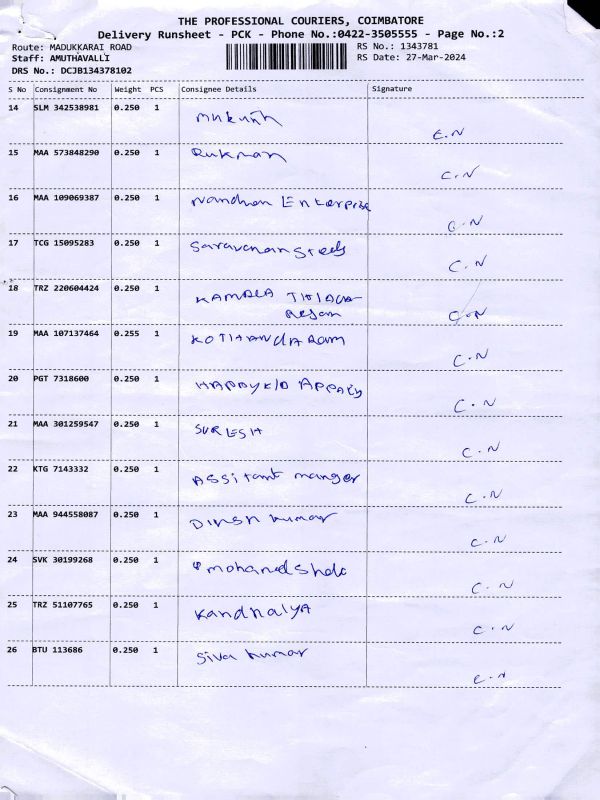 THE PROFESSIONAL COURIERS, COIMBATORE
Delivery Runsheet - PCK - Phone No.:0422-3505555 - Page No.:2
Route: MADUKKARAI ROAD RS No.: 1343781
Staff: AMUTHAVALLI RS Date: 27-Mar-2024
DRS No.: DCJB134378102
S No Consignment No Weight PCS Consignee Details Signature
14 SLM 342538981 0.250 1 C.N
15 MAA 573848290 0.250 1 Rukman C.N
16 MAA 109069387 0.250 1 Nandhan Enterprise C.N
17 TCG 15095283 0.250 1 Saravanan Steels C.N
18 TRZ 220604424 0.250 1 KAMALA C.N
19 MAA 107137464 0.255 1 KOTHANdARam C.N
20 PGT 7318600 0.250 1 C.N
21 MAA 301259547 0.250 1 SURESH C.N
22 KTG 7143332 0.250 1 Assitant manger C.N
23 MAA 944558087 0.250 1 Dinesh kumar C.N
24 SVK 30199268 0.250 1 C.N
25 TRZ 51107765 0.250 1 Kandhaiya C.N
26 BTU 113686 0.250 1 Siva kumar C.N